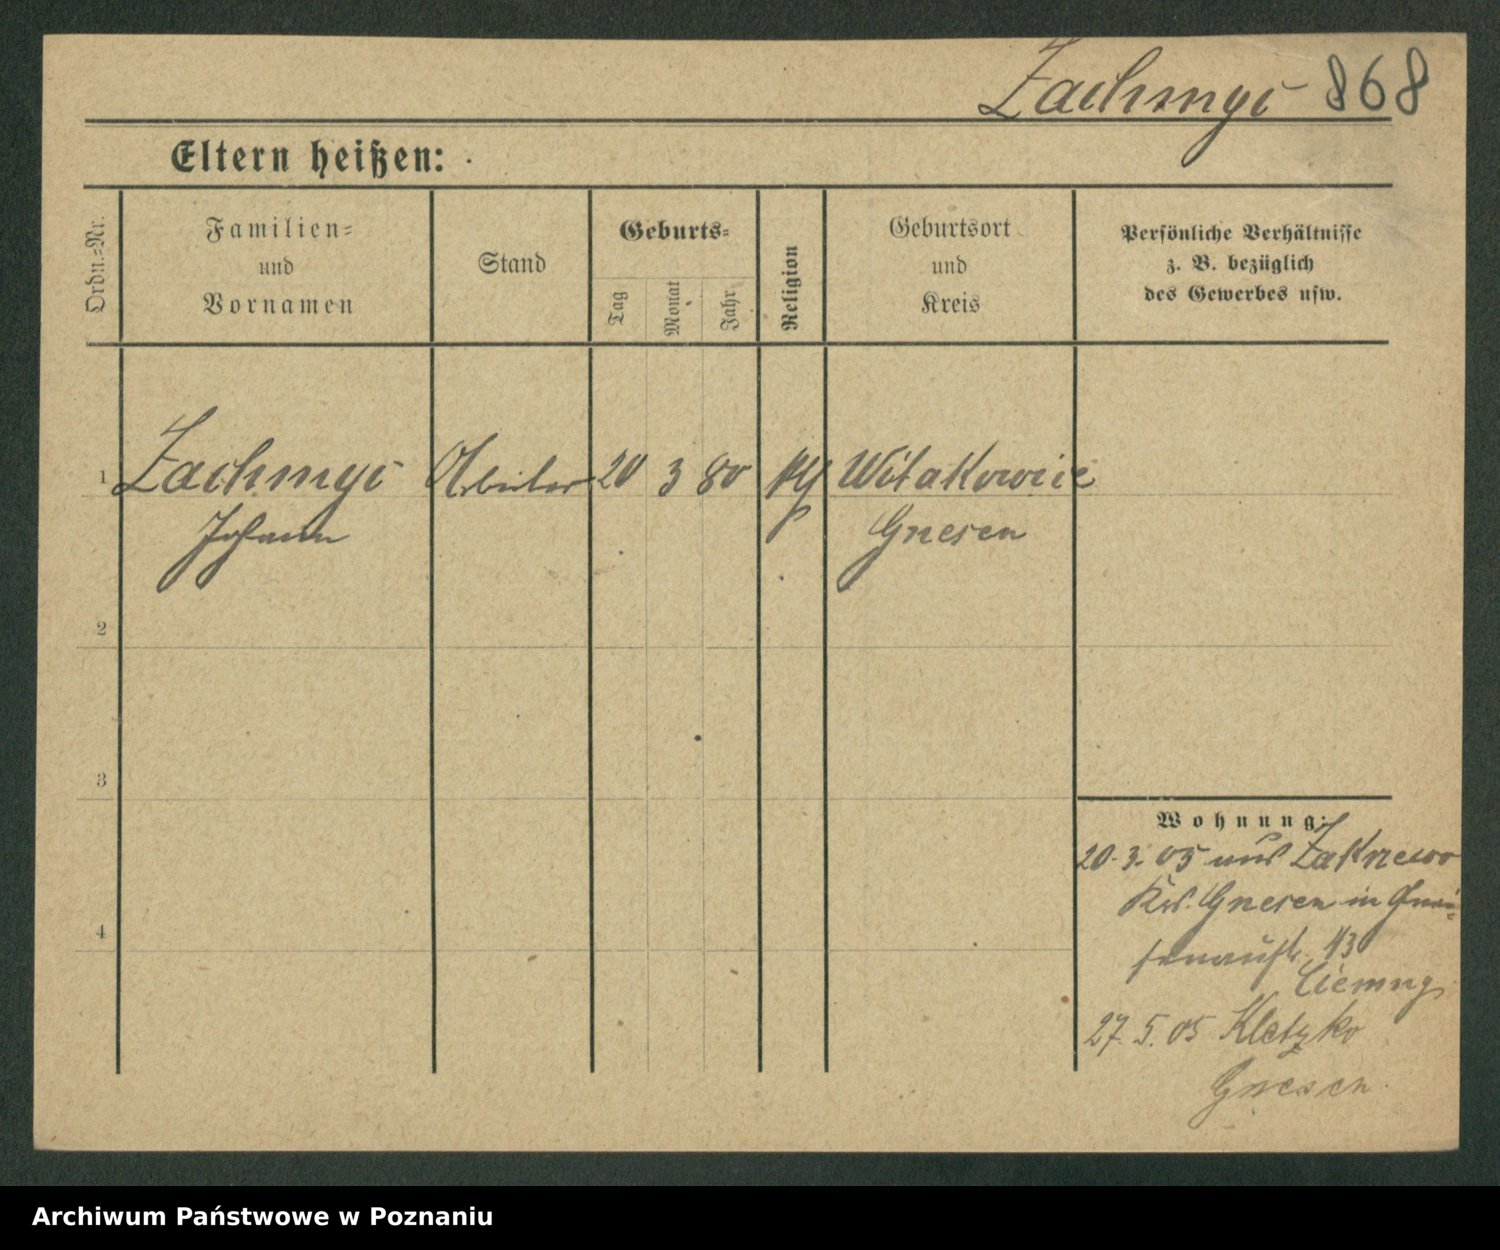 Zachmyc 868
Eltern heißen:
Ordn.=Nr.
Familien=
und
Vornamen
Stand
Geburts=
Tag
Monat
Jahr
Religion
Geburtsort
und
Kreis
Persönliche Verhältnisse
z. B. bezüglich
des Gewerbes usw.
1 Zachmyc Arbeiter 20 3 80 kth Witakowice
Johann Gnesen
2
3
4
Wohnung:
20. 3. 05 aus Zakrzewo
Krs. Gnesen in Gnei=
senaustr. 43
27. 5. 05 Kletzko
Gnesen
Archiwum Państwowe w Poznaniu